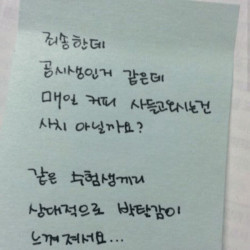 죄송한데
공시생인거 같은데
매일 커피 사들고오시는건
사치 아닐까요?
같은 수험생끼리
상대적으로 박탄감이
느껴져서요...